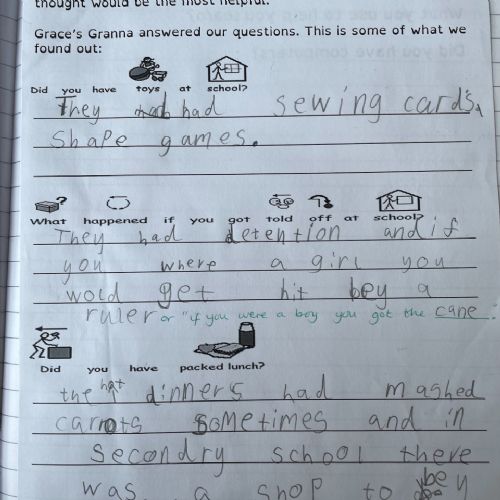 thought would be the most helpful.
Grace's Granna answered our questions. This is some of what we
found out:
Did you have toys at school?
They had sewing cards,
Shape games.
What happened if you got told off at school?
They had detention and if
you where a girl you
wold get hit bey a
ruler or "if you were a boy you got the cane."
Did you have packed lunch?
the hot dinners had mashed
carrots sometimes and in
Secondry school there
was a shop to bey